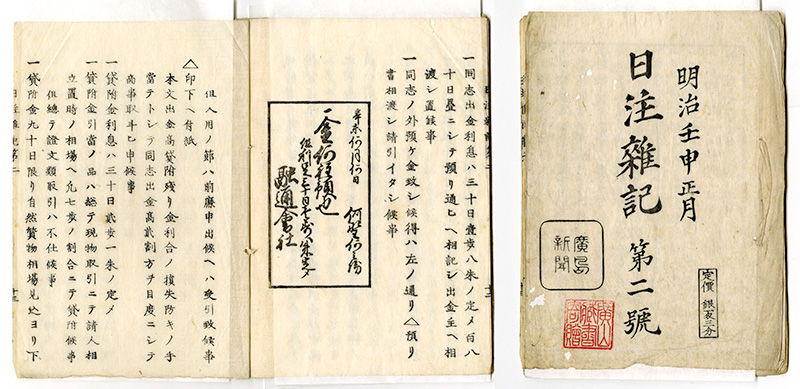 明治壬申正月
日注雜記 第二號
定價 銀
三分
廣島
新聞
一同志出金利息ハ三十日壹歩八朱ノ定メ百八
十日疊ニシテ預リ通ヒヘ相記シ出金主ヘ相
渡シ置候事
一同志ノ外預ケ金致シ候得ハ左ノ通リ△預リ
書相渡シ請引イタシ候事
辛未何月何日
一金何程
融通會社
但入用ノ節ハ前廉申出候ヘハ受引致候事
△印下ヘ付紙
本文出金高貸附殘リ金利合ノ損失防キノ手
當テトシテ同志出金高貳割方ヲ目度ニシテ
商事取斗ヒ申候事
一貸附金利息ハ三十日貳歩一朱ノ定メ
一貸附金引當ノ品ハ總テ現物取引ニテ請人相
立置時ノ相場ヘ凡七歩ノ割合ニテ貸附候事
但總テ證文類取引ハ不仕候事
一貸附金九十日限リ自然貸物相場見込ヨリ下